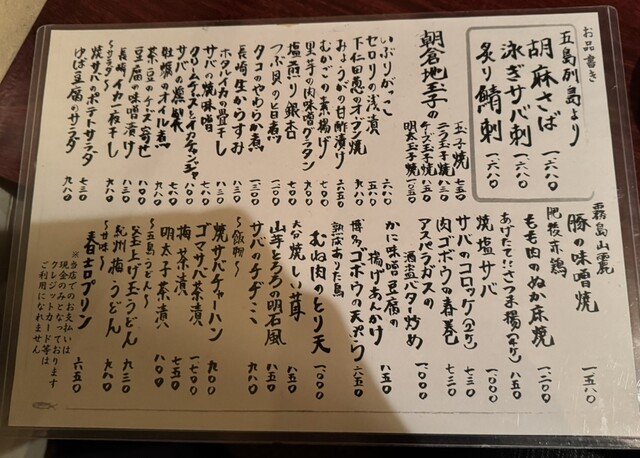 お品書き
五島列島より
胡麻さば 一六八〇
泳ぎサバ刺 一六八〇
炙り鯖刺 一六八〇
朝倉地玉子の
玉子焼 七三〇
ニラ玉子焼 八三〇
チーズ玉子焼
明太玉子焼 一〇五〇
いぶりがっこ 六八〇
セロリの浅漬 五八〇
下仁田葱のオーブン焼
みょうがの甘酢漬け 六五〇
むかごの素揚げ 七〇〇
里芋の肉味噌グラタン 九〇〇
塩煎り銀杏 七〇〇
つぶ貝の旨煮
タコのやわらか煮 一三〇〇
長崎生からすみ
ホタルイカの畳干し
サバの焼味噌
クリームチーズとイカチャンジャ
サバの燻製
牡蠣のオイル煮
茶豆のチーズ寄せ
豆腐の味噌漬け
長崎イカ一夜干し
〜サラダ〜
焼サバのポテトサラダ 七三〇
ゆば豆腐のサラダ 九八〇
霧島山麓
豚の味噌焼 一五八〇
肥後赤鶏
もも肉のぬか床焼 一二〇〇
あげたて！！さつま揚(半ケ) 八五〇
焼塩サバ 一〇〇〇
サバのコロッケ(2ケ) 七三〇
肉ゴボウの春巻 七三〇
アスパラガスの
酒盗バター炒め 一〇〇〇
かに味噌豆腐の
揚げあんかけ 八五〇
博多ゴボウの天ぷら 六五〇
熟成ありた鳥
むね肉のとり天 一〇〇〇
大分焼しい茸 八五〇
山芋とろろの明石風 八五〇
サバのチヂミ 九八〇
〜飯物〜
焼サバチャーハン 九〇〇
ゴマサバ茶漬 一七〇〇
梅茶漬 七五〇
明太子茶漬 八〇〇
〜五島うどん〜
釜上げ玉うどん 九三〇
紀州梅うどん 九八〇
〜甘味〜
春日土ロプリン 六五〇
※当店でのお支払いは
現金のみとなっております
クレジットカード等は
ご利用になれません